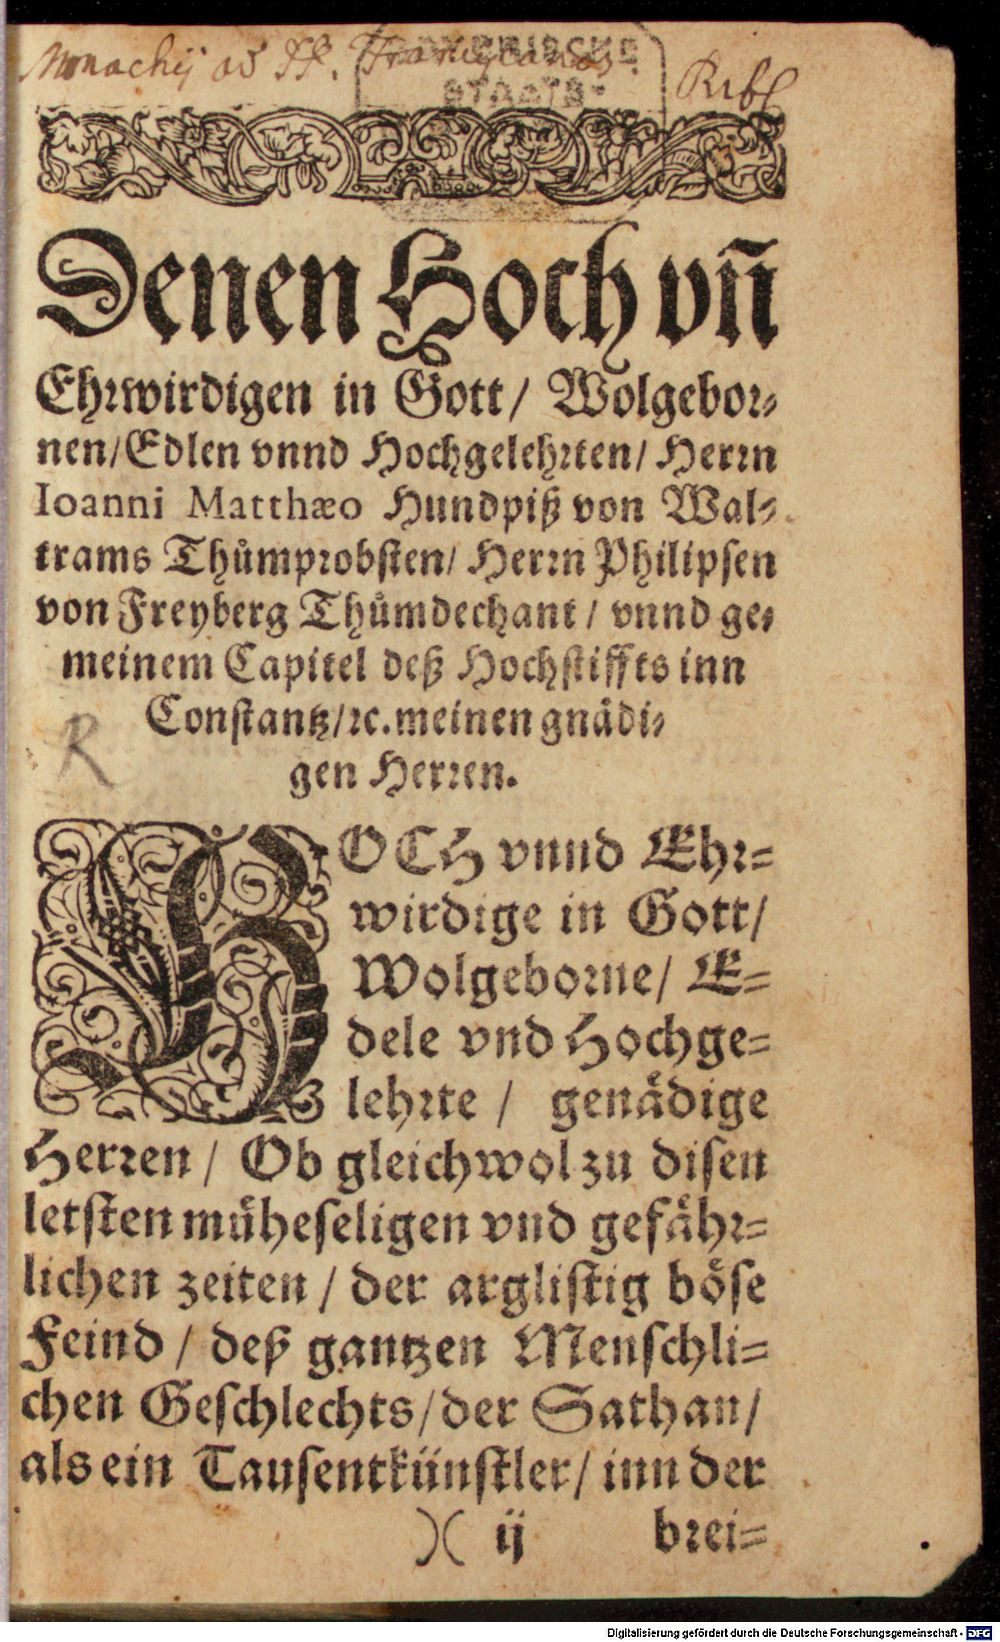 Monachij ad SS. Franciscanos.
BAYERISCHE
STAATS-
Denen Hoch vñ
Ehrwirdigen in Gott/ Wolgebor⸗
nen/Edlen vnnd Hochgelehrten/ Herrn
Ioanni Matthæo Hundpiß von Wal⸗
trams Thůmprobsten/ Herrn Philipsen
von Freyberg Thůmdechant/ vnnd ge⸗
meinem Capitel deß Hochstiffts inn
Constantz/ꝛc. meinen gnädi⸗
gen Herren.
R
HOCH vnnd Ehr⸗
wirdige in Gott/
Wolgeborne/ E⸗
dele vnd Hochge⸗
lehrte/ genädige
Herren/ Ob gleichwol zu disen
letsten müheseligen vnd gefähr⸗
lichen zeiten/ der arglistig böse
Feind/ deß gantzen Menschli⸗
chen Geschlechts/der Sathan/
als ein Tausentkünstler/ inn der
)( ij brei⸗
Digitalisierung gefördert durch die Deutsche Forschungsgemeinschaft - DFG